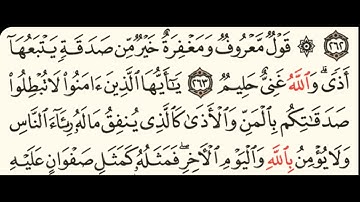 ٢٦٢ ۞ قَوْلٌ مَّعْرُوفٌ وَمَغْفِرَةٌ خَيْرٌ مِّن صَدَقَةٍ يَتْبَعُهَآ
أَذًى ۗ وَٱللَّهُ غَنِىٌّ حَلِيمٌ ٢٦٣ يَـٰٓأَيُّهَا ٱلَّذِينَ ءَامَنُوا۟ لَا تُبْطِلُوا۟
صَدَقَـٰتِكُم بِٱلْمَنِّ وَٱلْأَذَىٰ كَٱلَّذِى يُنفِقُ مَالَهُۥ رِئَآءَ ٱلنَّاسِ
وَلَا يُؤْمِنُ بِٱللَّهِ وَٱلْيَوْمِ ٱلْـَٔاخِرِ ۖ فَمَثَلُهُۥ كَمَثَلِ صَفْوَانٍ عَلَيْهِ